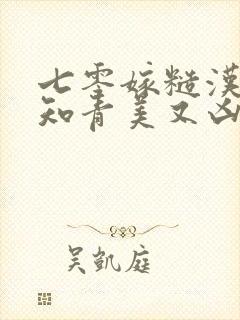 七零嫁糙漢
知青美又凶
吳凱庭